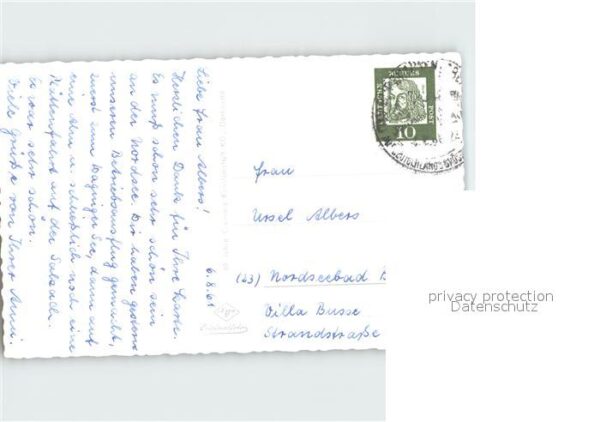 6.8.61
Liebe Frau Albers!
Herzlichen Dank für Ihre Karte.
Es muß schon sehr schön sein
an der Nordsee. Wir haben gestern
unseren Betriebsausflug gemacht,
zuerst zum Waginger See, dann auf
eine Alm u. schließlich noch eine
Plättenfahrt auf der Salzach.
Es war sehr schön.
Viele Grüße von Ihrer
Frau
Ursel Albers
(23) Nordseebad
Villa Busse
Strandstraße
10
privacy protection
Datenschutz